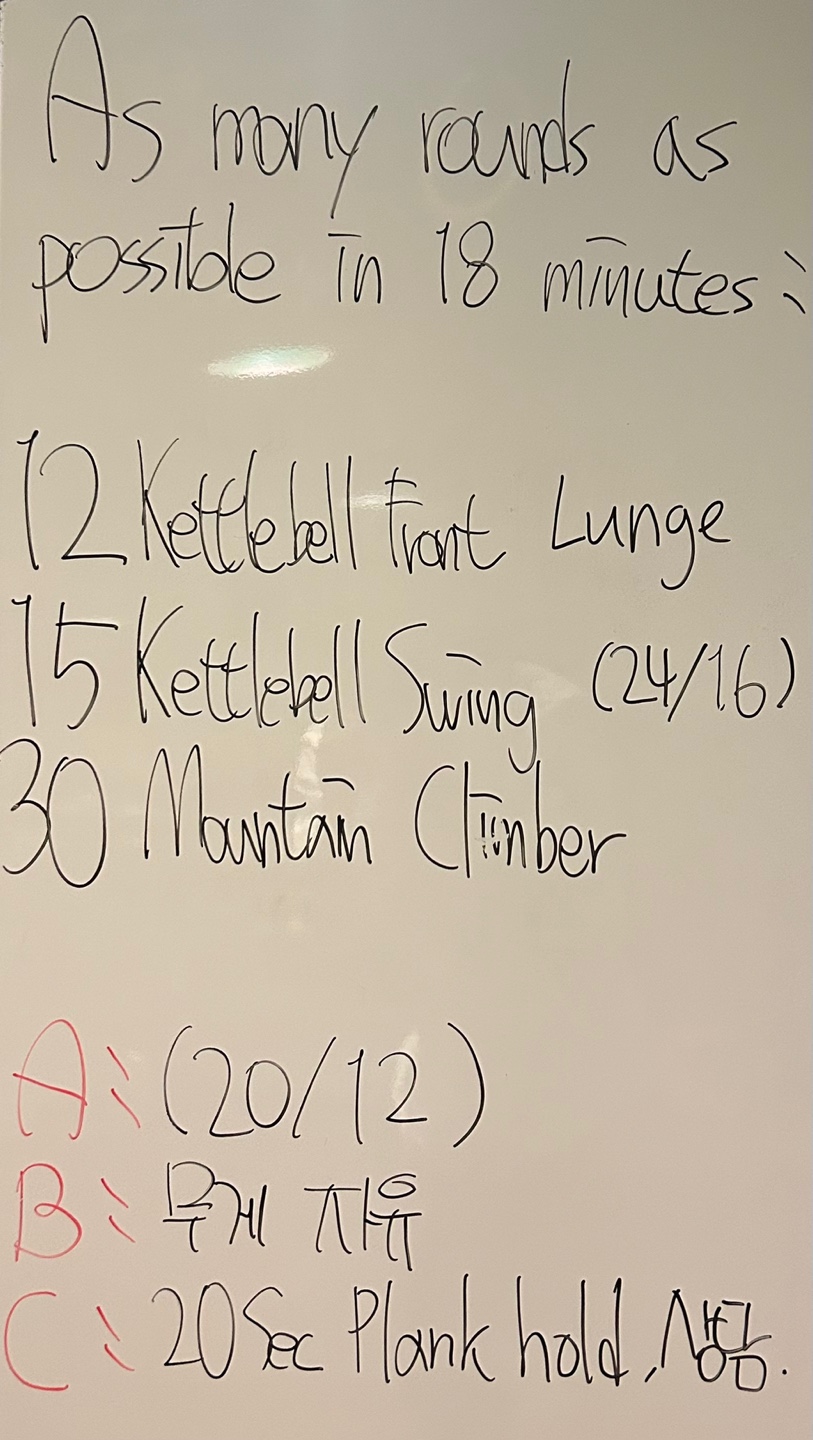 As many rounds as
possible in 18 minutes:
12 Kettlebell Front Lunge
15 Kettlebell Swing (24/16)
30 Mountain Climber
A: (20/12)
B: 무게 자유
C: 20Sec Plank hold, 상담.